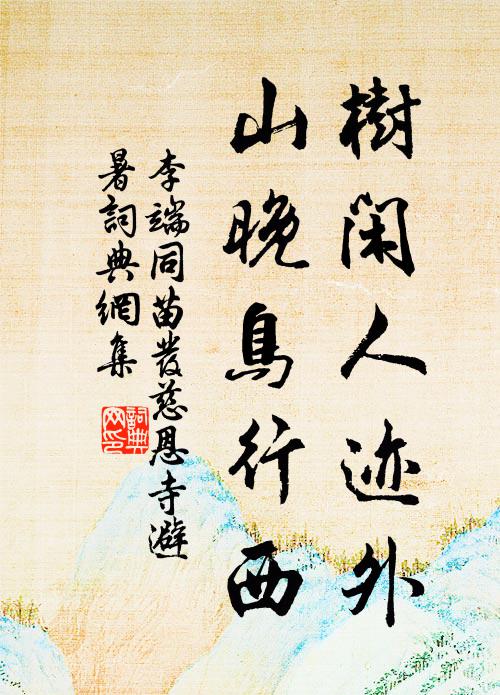 樹閑人迹外
山晚鳥行西
李端同苗發慈恩寺避
暑詞典網集
詞典
网印